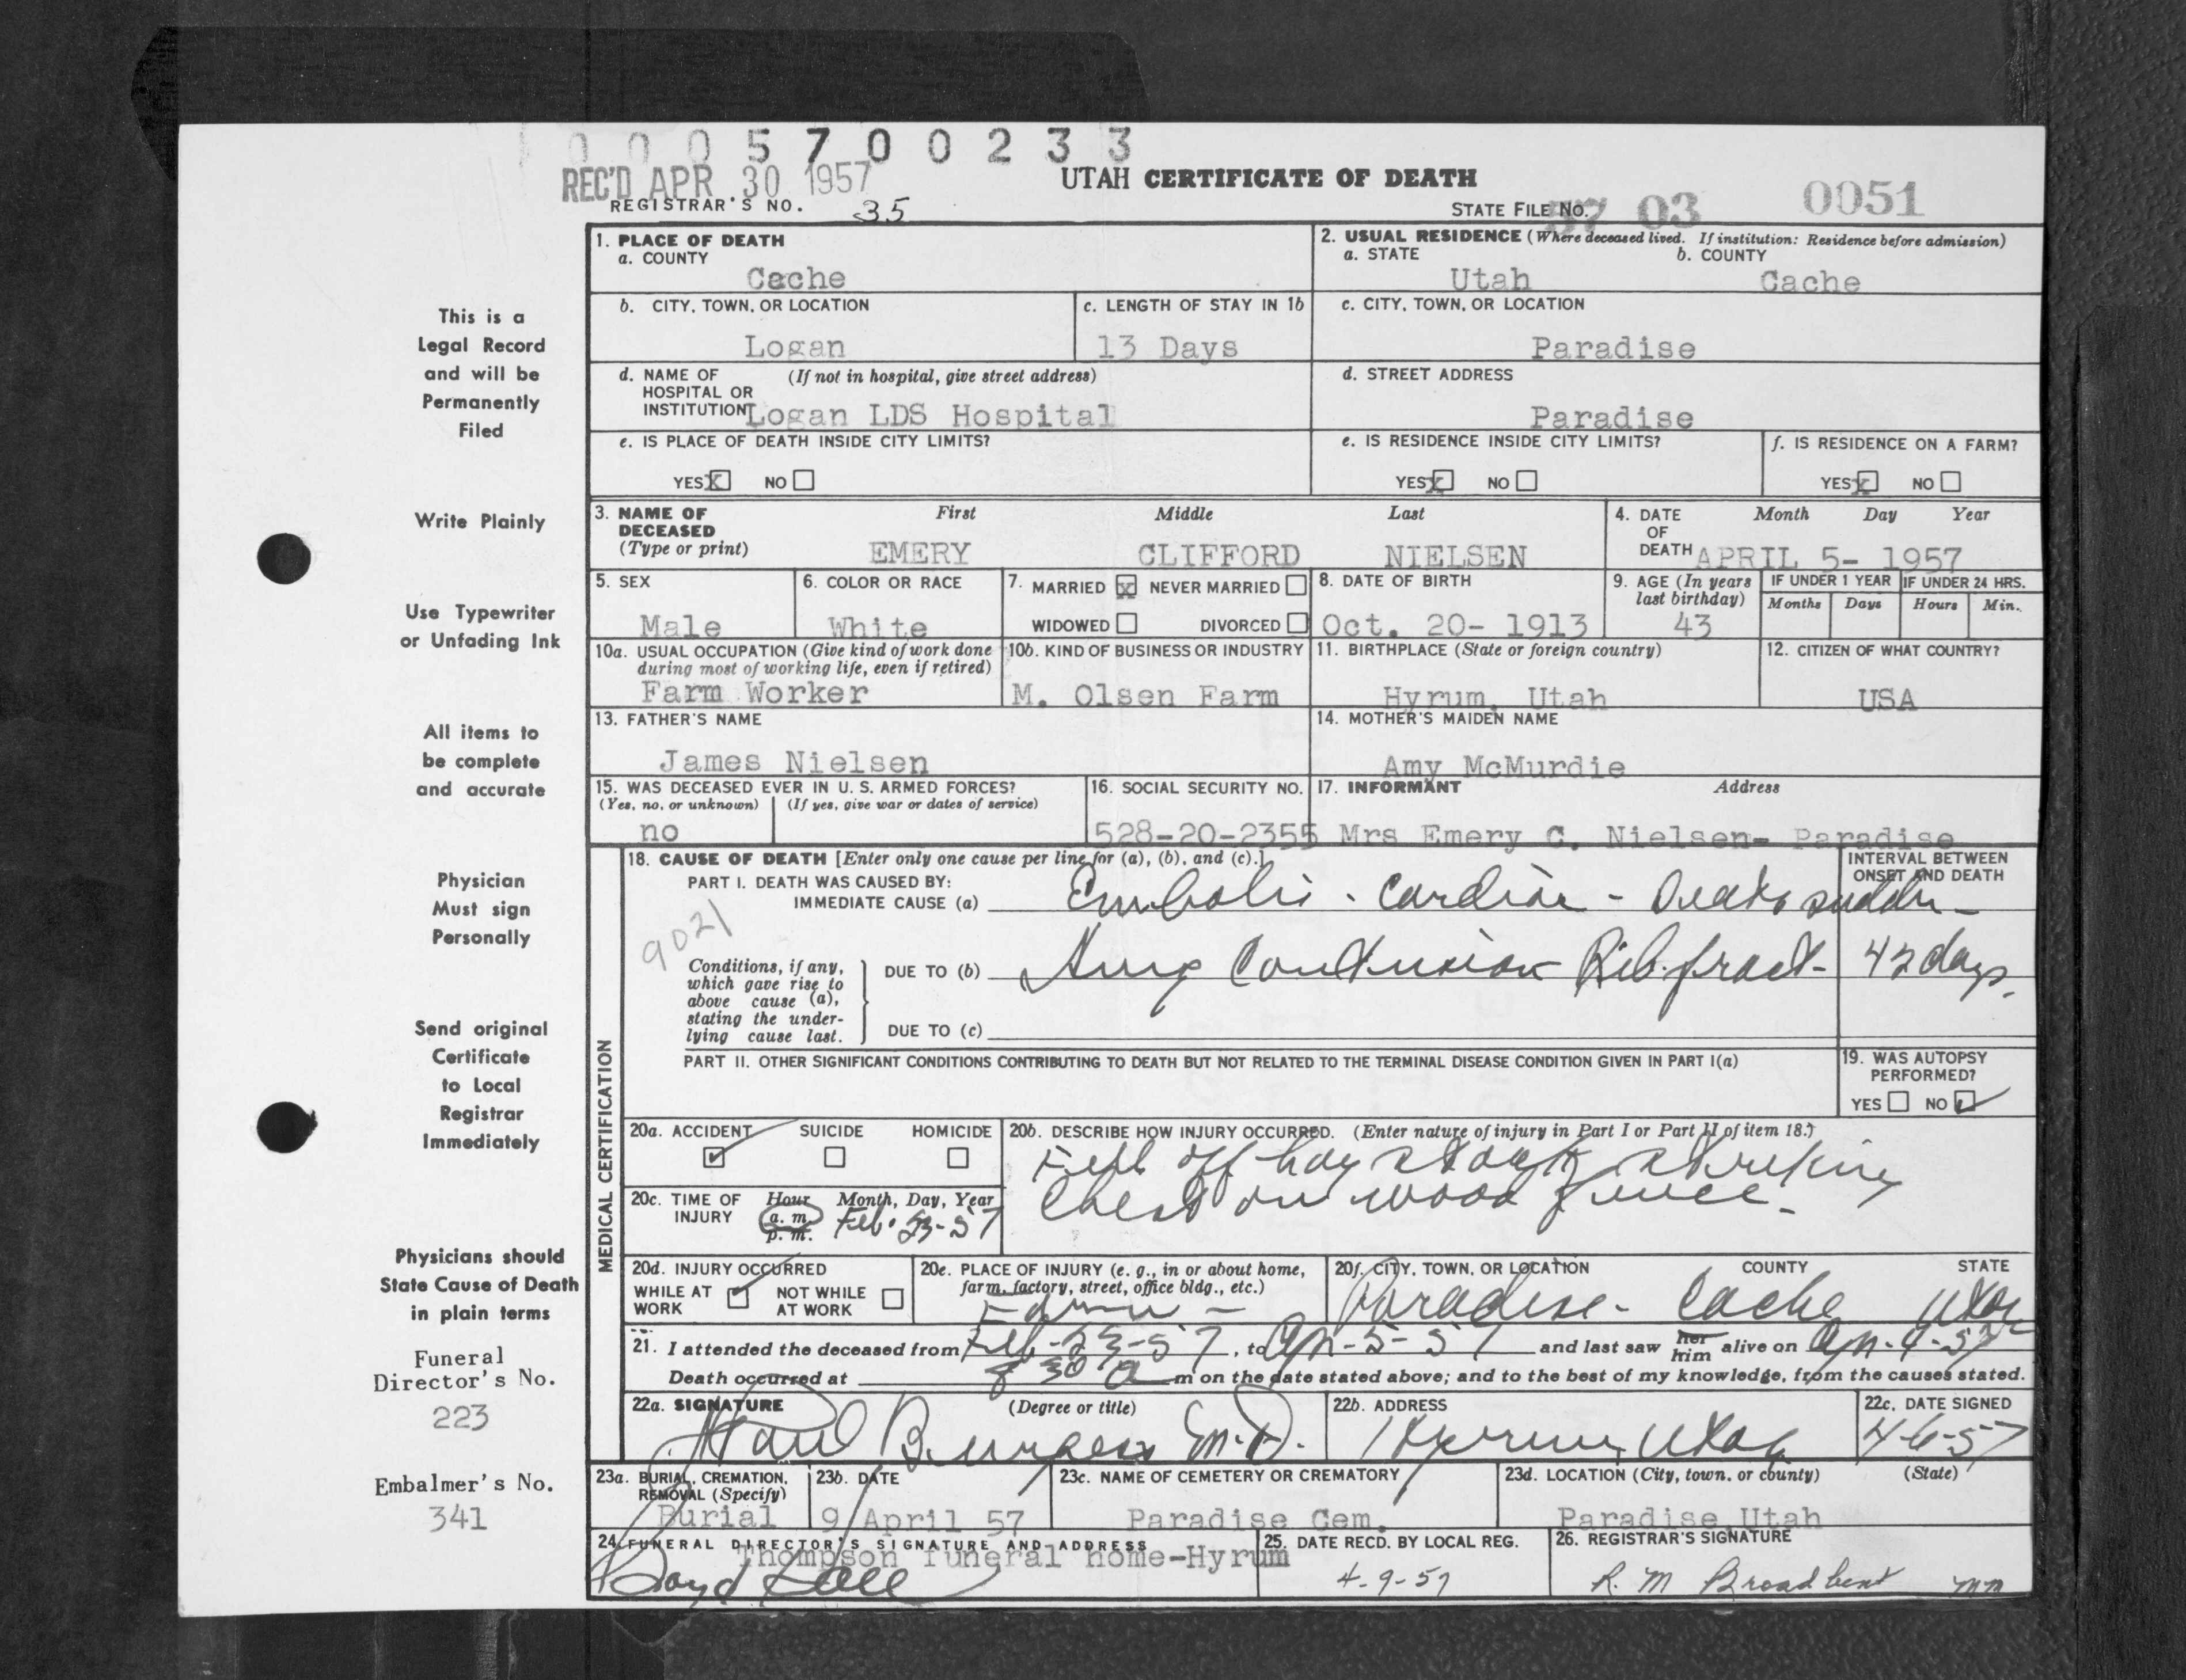 0 0 0 5 7 0 0 2 3 3
REC'D APR 30 1957
UTAH CERTIFICATE OF DEATH
REGISTRAR'S NO. 35
STATE FILE No. 57 03 0051
1. PLACE OF DEATH
a. COUNTY
Cache
2. USUAL RESIDENCE (Where deceased lived. If institution: Residence before admission)
a. STATE b. COUNTY
Utah Cache
b. CITY, TOWN, OR LOCATION
Logan
c. LENGTH OF STAY IN 1b
13 Days
c. CITY, TOWN, OR LOCATION
Paradise
d. NAME OF (If not in hospital, give street address)
HOSPITAL OR
INSTITUTION Logan LDS Hospital
d. STREET ADDRESS
Paradise
e. IS PLACE OF DEATH INSIDE CITY LIMITS?
YES X NO
e. IS RESIDENCE INSIDE CITY LIMITS?
YES X NO
f. IS RESIDENCE ON A FARM?
YES X NO
3. NAME OF DECEASED
(Type or print)
First Middle Last
EMERY CLIFFORD NIELSEN
4. DATE OF DEATH
Month Day Year
APRIL 5- 1957
5. SEX
Male
6. COLOR OR RACE
White
7. MARRIED X NEVER MARRIED
WIDOWED DIVORCED
8. DATE OF BIRTH
Oct. 20- 1913
9. AGE (In years last birthday)
43
IF UNDER 1 YEAR
Months Days
IF UNDER 24 HRS.
Hours Min.
10a. USUAL OCCUPATION (Give kind of work done
during most of working life, even if retired)
Farm Worker
10b. KIND OF BUSINESS OR INDUSTRY
M. Olsen Farm
11. BIRTHPLACE (State or foreign country)
Hyrum, Utah
12. CITIZEN OF WHAT COUNTRY?
USA
13. FATHER'S NAME
James Nielsen
14. MOTHER'S MAIDEN NAME
Amy McMurdie
15. WAS DECEASED EVER IN U. S. ARMED FORCES?
(Yes, no, or unknown) (If yes, give war or dates of service)
no
16. SOCIAL SECURITY NO.
528-20-2355
17. INFORMANT Address
Mrs Emery C. Nielsen- Paradise
MEDICAL CERTIFICATION
18. CAUSE OF DEATH [Enter only one cause per line for (a), (b), and (c).]
INTERVAL BETWEEN
ONSET AND DEATH
PART I. DEATH WAS CAUSED BY:
IMMEDIATE CAUSE (a) Emboli - Cardiac - Death sudden -
9021
Conditions, if any,
which gave rise to
above cause (a),
stating the under-
lying cause last.
DUE TO (b) Lung Contusion Rib fract- 42 days.
DUE TO (c)
PART II. OTHER SIGNIFICANT CONDITIONS CONTRIBUTING TO DEATH BUT NOT RELATED TO THE TERMINAL DISEASE CONDITION GIVEN IN PART I(a)
19. WAS AUTOPSY
PERFORMED?
YES NO ✓
20a. ACCIDENT SUICIDE HOMICIDE
✓
20b. DESCRIBE HOW INJURY OCCURRED. (Enter nature of injury in Part I or Part II of item 18.)
Fell off hay stack striking
Chest on wood fence.
20c. TIME OF INJURY
Hour Month, Day, Year
a. m. Feb. 23-57
p. m.
20d. INJURY OCCURRED
WHILE AT WORK ✓ NOT WHILE AT WORK
20e. PLACE OF INJURY (e. g., in or about home,
farm, factory, street, office bldg., etc.)
Farm -
20f. CITY, TOWN, OR LOCATION COUNTY STATE
Paradise - Cache Utah
21. I attended the deceased from Feb-23-57, to Apr-5-57 and last saw her him alive on Apr-4-57
Death occurred at 8 30 a m on the date stated above; and to the best of my knowledge, from the causes stated.
22a. SIGNATURE (Degree or title)
Paul Burgess M.D.
22b. ADDRESS
Hyrum, Utah
22c. DATE SIGNED
4-6-57
23a. BURIAL, CREMATION,
REMOVAL (Specify)
Burial
23b. DATE
9 April 57
23c. NAME OF CEMETERY OR CREMATORY
Paradise Cem.
23d. LOCATION (City, town, or county) (State)
Paradise Utah
24. FUNERAL DIRECTOR'S SIGNATURE AND ADDRESS
Thompson funeral home-Hyrum
25. DATE RECD. BY LOCAL REG.
4-9-57
26. REGISTRAR'S SIGNATURE
R. M Broadbent mm
This is a
Legal Record
and will be
Permanently
Filed
Write Plainly
Use Typewriter
or Unfading Ink
All items to
be complete
and accurate
Physician
Must sign
Personally
Send original
Certificate
to Local
Registrar
Immediately
Physicians should
State Cause of Death
in plain terms
Funeral
Director's No.
223
Embalmer's No.
341